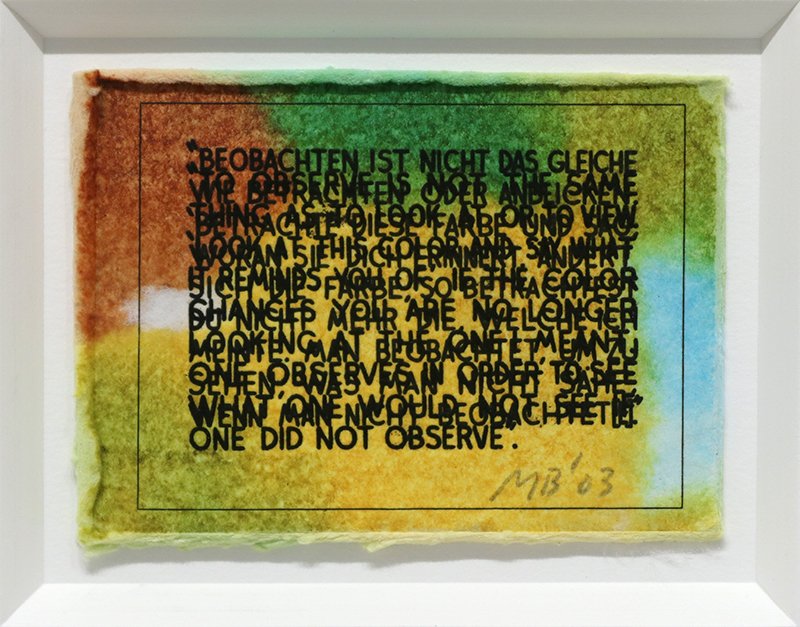 "BEOBACHTEN IST NICHT DAS GLEICHE
"TO OBSERVE IS NOT THE SAME
WIE BETRACHTEN ODER ANBLICKEN
THING AS TO LOOK AT OR TO VIEW
'BETRACHTE DIESE FARBE UND SAG
'LOOK AT THIS COLOR AND SAY WHAT
WORAN SIE DICH ERINNERT' ÄNDERT
IT REMINDS YOU OF' IF THE COLOR
SICH DIE FARBE SO BETRACHTEST
CHANGES YOU ARE NO LONGER
DU NICHT MEHR DIE WELCHE ICH
LOOKING AT THE ONE I MEANT.
MEINTE. MAN BEOBACHTET, UM ZU
ONE OBSERVES IN ORDER TO SEE
SEHEN, WAS MAN NICHT SÄHE,
WHAT ONE WOULD NOT SEE IF
WENN MAN NICHT BEOBACHTET."
ONE DID NOT OBSERVE".
MB '03